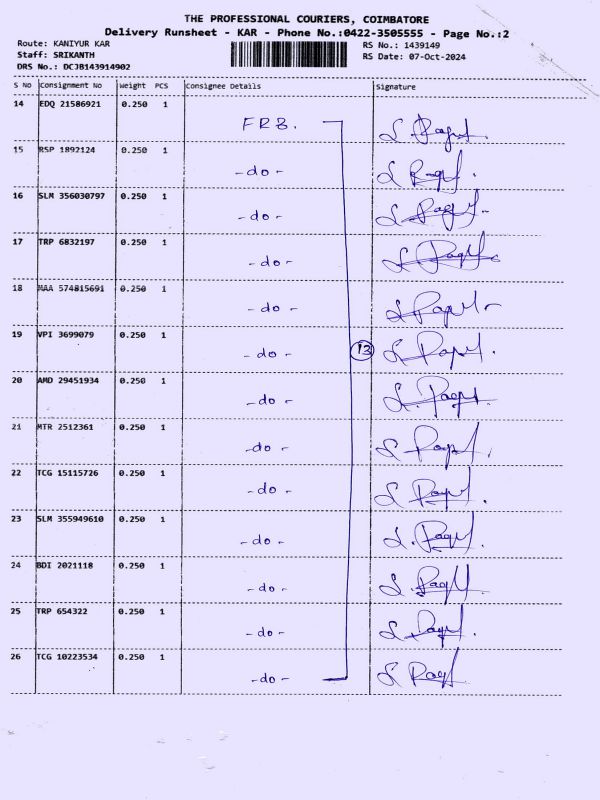 THE PROFESSIONAL COURIERS, COIMBATORE
Delivery Runsheet - KAR - Phone No.:0422-3505555 - Page No.:2
Route: KANIYUR KAR RS No.: 1439149
Staff: SRIKANTH RS Date: 07-Oct-2024
DRS No.: DCJB143914902
S No Consignment No Weight PCS Consignee Details Signature
14 EDQ 21586921 0.250 1
FRB.
15 RSP 1892124 0.250 1
-do-
16 SLM 356030797 0.250 1
-do-
17 TRP 6832197 0.250 1
-do-
18 MAA 574815691 0.250 1
-do-
19 VPI 3699079 0.250 1
-do- 13
20 AMD 29451934 0.250 1
-do-
21 MTR 2512361 0.250 1
-do-
22 TCG 15115726 0.250 1
-do-
23 SLM 355949610 0.250 1
-do-
24 BDI 2021118 0.250 1
-do-
25 TRP 654322 0.250 1
-do-
26 TCG 10223534 0.250 1
-do-